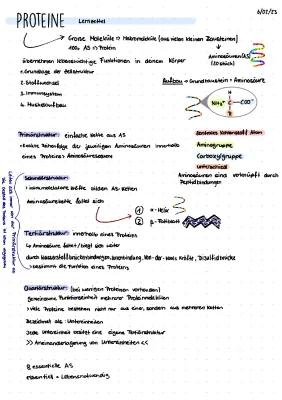 PROTEINE Lernzettel
6/02/23
Große Moleküle → Makromoleküle (aus vielen kleinen Bausteinen)
100+ AS → Protein
Aminosäuren (AS)
(20 stück)
übernehmen lebenswichtige Funktionen in deinem Körper
1. Grundlage der Zellstruktur
2. Stoffwechsel
3. Immunsystem
4. Muskelaufbau
Aufbau → Grundbaustein = Aminosäure
H
NH₃⁺ C COO⁻
R
Primärstruktur: einfache Kette aus AS
→ exakte Reihenfolge der jeweiligen Aminosäuren innerhalb
eines Proteins: Aminosäuresequenz
zentrales Kohlenstoff Atom
Aminogruppe
Carboxylgruppe
unterschied
Aminosäuren eine verknüpft durch
Peptidbindungen
Sekundärstruktur:
AS-Ketten
Aminosäurekette faltet sich
① α-Helix
② β-Faltblatt
Tertiärstruktur: innerhalb eines Proteins
↳ Aminosäure faltet/biegt sich weiter
durch Wasserstoffbrückenbindungen, Ionenbindung, Van-der-Waals Kräfte, Disulfidbrücke
> bestimmt die Funktion eines Proteins
Quartärstruktur: (bei wenigen Proteinen vorhanden)
gemeinsame Funktionseinheit mehrerer Proteinmoleküle
> viele Proteine bestehen nicht nur aus einer, sondern aus mehreren Ketten
Bezeichnet als: Untereinheiten
Jede Untereinheit besitzt eine eigene Tertiärstruktur
>> Aneinanderlagerung von Untereinheiten <<
8 essentielle AS
essentiell = Lebensnotwendig